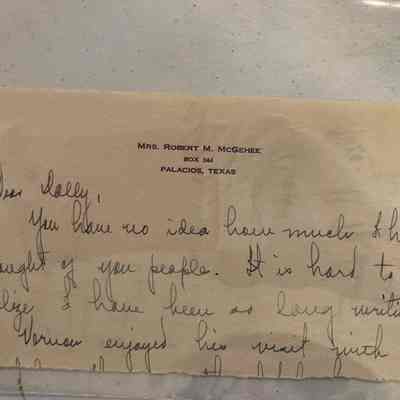 MRS. ROBERT M. MCGEHEE
BOX 361
PALACIOS, TEXAS
Dear Dolly,
You have no idea how much I h
ought of you people. It is hard to
lize I have been so long writi
Vernon enjoyed his visit with